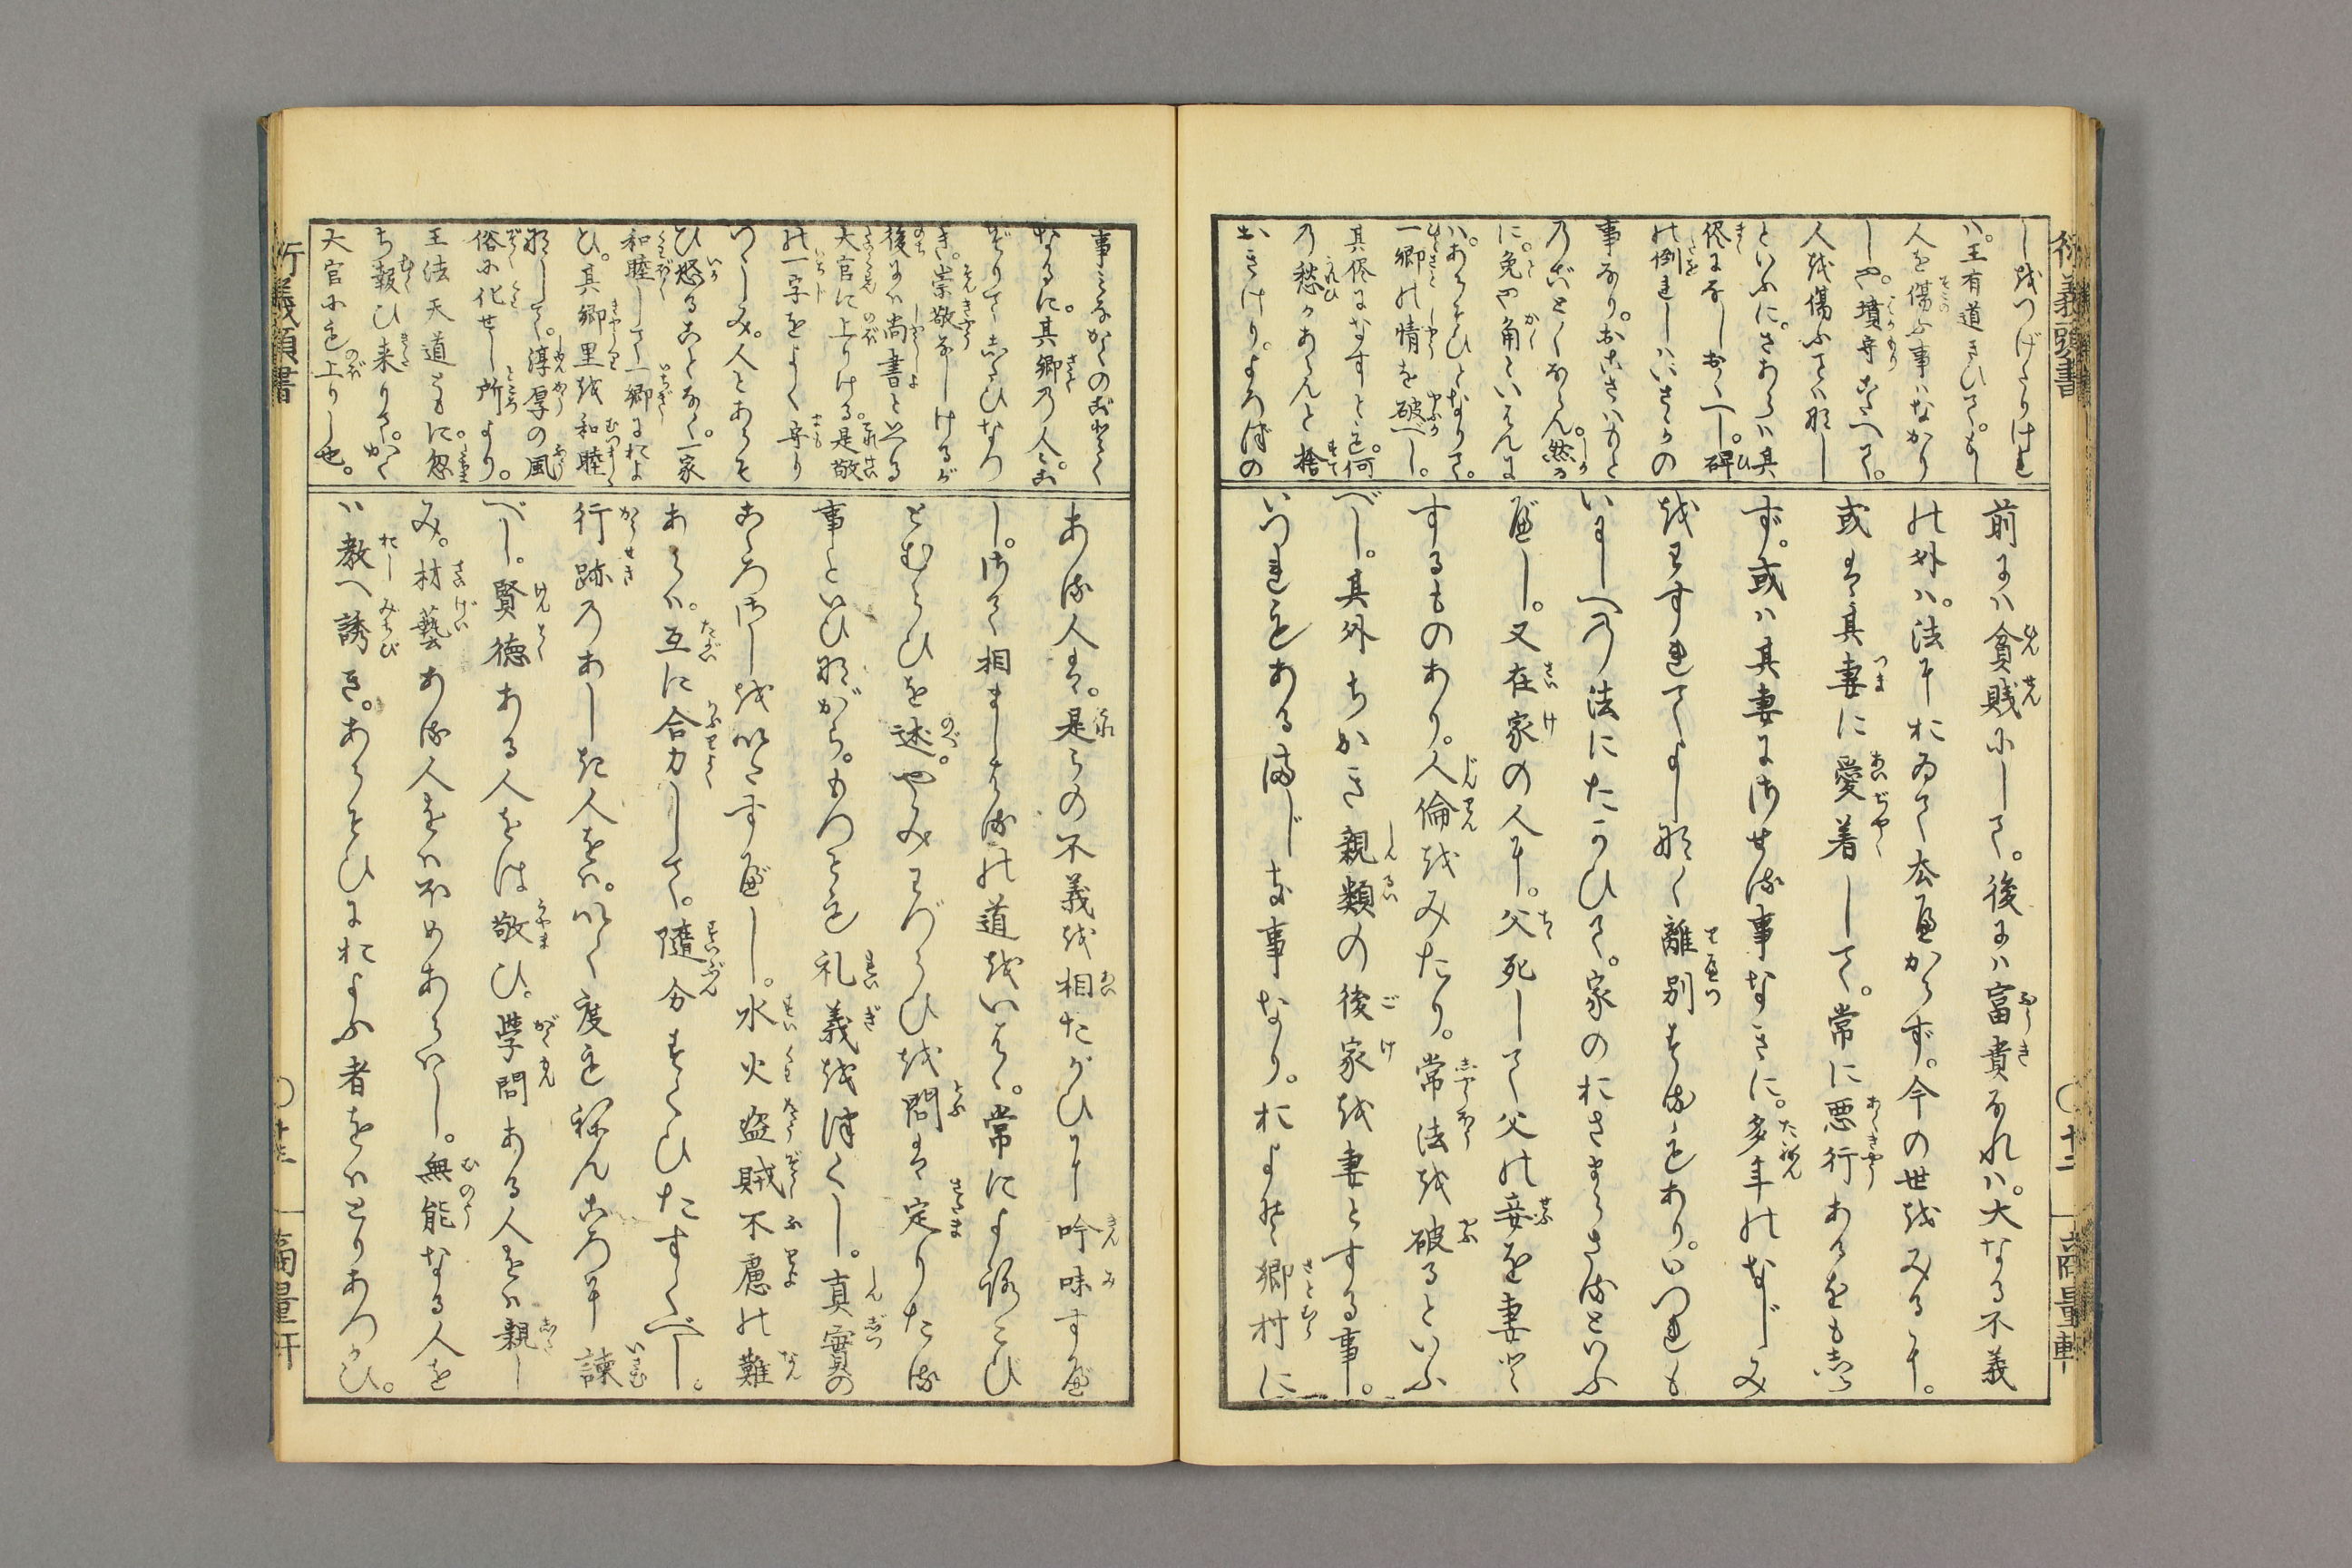 しをつげたりけれ
ハ。王有道きひて。もし
人を傷ふ事ハなかり
しや。墳守こたへて。
人を傷ふてハ那し
といふに。さあらハ其
侭になしおくべし。碑
の倒れしハいさゝかの
事なり。おこさハもと
のごとくならん。然る
に。兎や角といはんに
ハ。あらそひとなりて。
一郷の情を破べし。
其侭になすとも。何
の愁かあらんと捨
おきけり。よろづの
前にハ貧賎にして。後にハ富貴なれハ。大なる不義
の外ハ。法におゐて去べからず。今の世をみるに。
或は其妻に愛着して。常に悪行あるをも志ら
ず。或ハ其妻にさせる事なきに。多年のなじみ
をわすれてよしなく離別するもあり。いつれも
いにしへの法にたかひて。家のおさまらさるといふ
べし。又在家の人に。父死して父の妾を妻と
するものあり。人倫をみたり。常法を破るといふ
べし。其外ちかき親類の後家を妻とする事。
いつれもあるまじき事なり。およそ郷村に
衍義頭書
○十二
商量軒
事ミなかくのごとく
なるに。其郷の人々。こ
ぞりてしたひなつ
き。崇敬なしけるが
後にハ尚書といへる
大官に上りける。是敬
の一字をよく守り
つゝしみ。人とあらそ
ひ怒ることなく。一家
和睦して一郷におよ
ひ。其郷里を和睦
那して。淳厚の風
俗に化せし所より。
王法天道ともに。忽
ち報ひ来りて。かく
大官にも上りし也。
ある人は。是らの不義を相たがひに吟味すべ
し。さて相ましはるの道をいはゝ。常によろこび
とむらひを述。やみわづらひを問は定りたる
事といひながら。もつとも礼義を厚くし。真実の
こゝろさしを以てすべし。水火盗賊不慮の難
あらハ。互に合力して。随分すくひたすくべし。
行跡のあしき人をハ。いく度もねんころに諫
べし。賢徳ある人をは敬ひ。学問ある人をハ親し
み。材藝ある人をハ求めあらハし。無能なる人を
ハ教へ誘き。あらそひにおよふ者をハとりあつかひ。
衍義頭書
○十三
商量軒